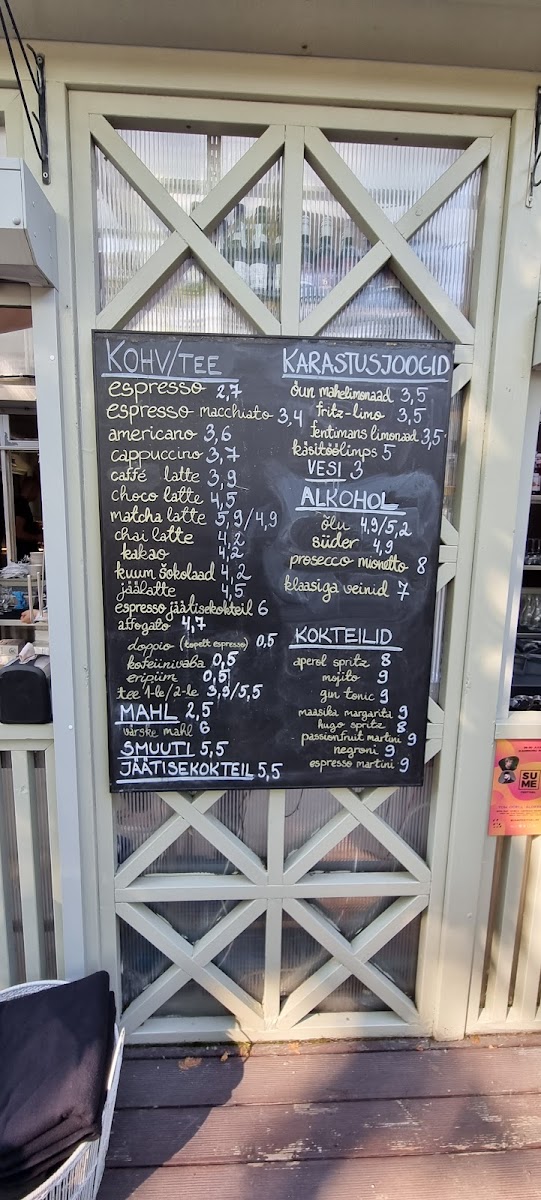 KOHV/TEE
espresso 2,7
espresso macchiato 3,4
americano 3,6
cappuccino 3,7
caffé latte 3,9
choco latte 4,5
matcha latte 5,9/4,9
chai latte 4,2
kakao 4,2
kuum šokolaad 4,2
jäälatte 4,5
espresso jäätisekokteil 6
affogato 4,7
doppio (topelt espresso) 0,5
kofeiinivaba 0,5
eripiim 0,5
tee 1-le/2-le 3,9/5,5
MAHL 2,5
värske mahl 6
SMUUTI 5,5
JÄÄTISEKOKTEIL 5,5
KARASTUSJOOGID
õun mahelimonaad 3,5
fritz-limo 3,5
fentimans limonaad 3,5
käsitöölimps 5
VESI 3
ALKOHOL
õlu 4,9/5,2
siider 4,9
prosecco mionetto 8
klaasiga veinid 7
KOKTEILID
aperol spritz 8
mojito 9
gin tonic 9
maasika margarita 9
hugo spritz 8
passionfruit martini 9
negroni 9
espresso martini 9
SU
ME